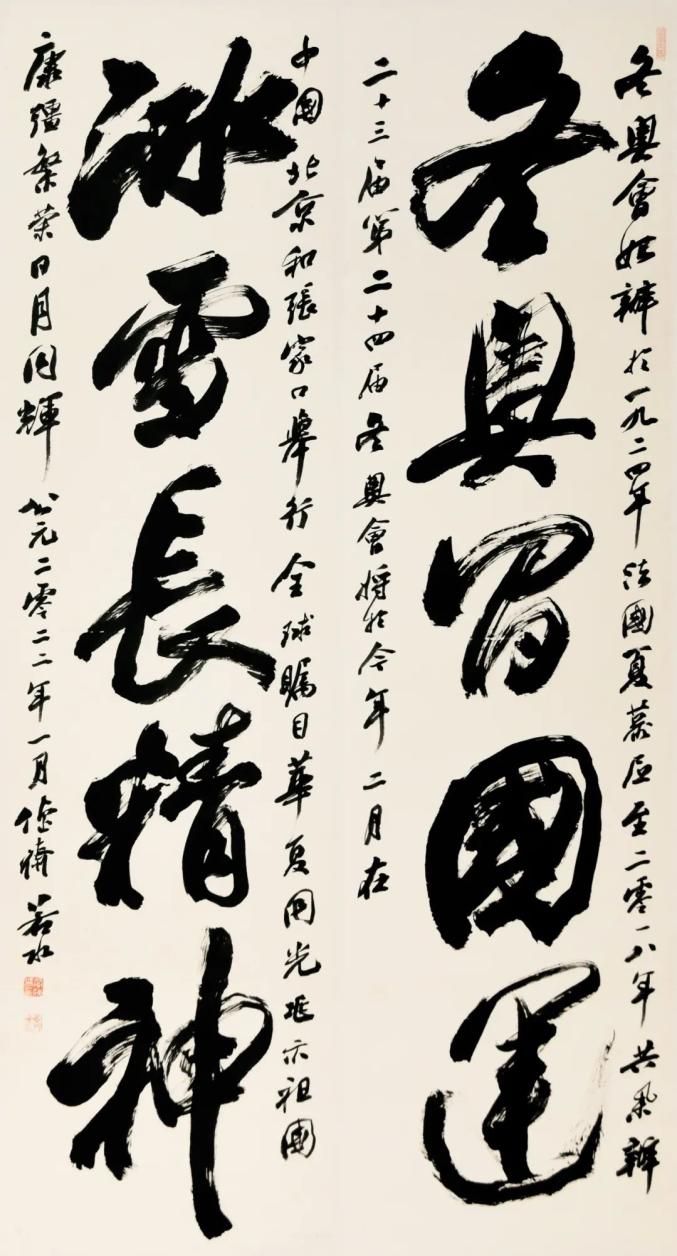 冬奥會始辦於一九二四年法國夏慕尼至二零一八年共承辦
冬奥國運
二十三届第二十四届冬奥會將於今年二月在
中國北京和張家口舉行全球矚目華夏同光示祖國
冰雪長精神
康彊繁荣日月同輝 公元二零二二年一月 若水